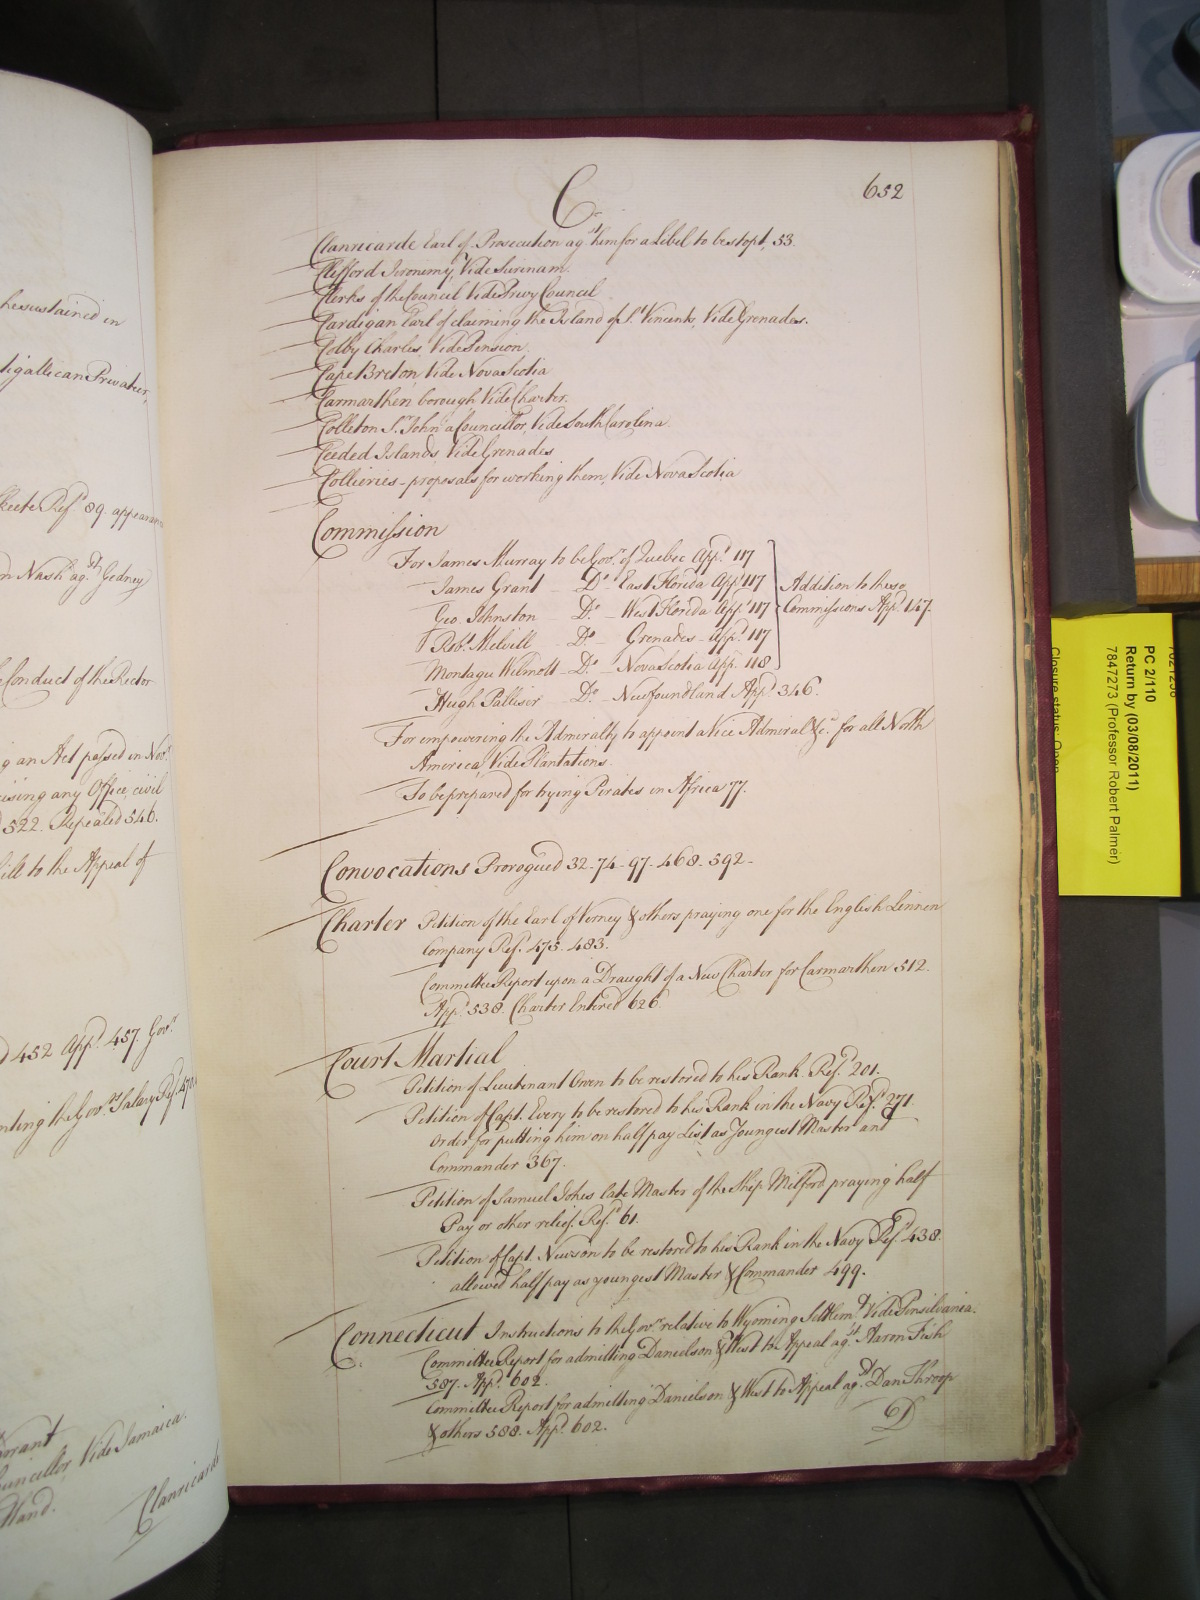 C
652
Clanricarde Earl of, Prosecution agst. him for a Libel to be stopt, 53.
Clifford Jeronemy, Vide Surinam.
Clerks of the Council Vide Privy Council
Cardigan Earl of claiming the Island of St. Vincents, Vide Grenades.
Colby Charles Vide Pension.
Cape Breton, Vide Nova Scotia
Carmarthen borough Vide Charter.
Colleton Sr. John a Councellor, Vide South Carolina.
Ceeded Islands Vide Grenades
Collieries - proposals for working them, Vide Nova Scotia
Commission
For James Murray to be Govr. of Quebec Appd. 117
James Grant - Do. East Florida Appd. 117
Geo. Johnston - Do. - West Florida Appd. 117
Robt. Melvill - Do. - Grenades - Appd. 117
Montagu Wilmott - Do. - Nova Scotia App. 118
Addition to these
Commissions Appd. 147.
Hugh Palliser - Do. - Newfoundland Appd. 346.
For empowering the Admiralty to appoint a Vice Admiral &c. for all North
America, Vide Plantations.
To be prepared for trying Pirates in Africa 77.
Convocations Prorogued 32-74-97-468-592-
Charter Petition of the Earl of Verney & others praying one for the English Linnen
Company Refd. 475. 483.
Committee Report upon a Draught of a New Charter for Carmarthen 512.
Appd. 538. Charter Entered 626
Court Martial
Petition of Lieutenant Owen to be restored to his Rank. Refd. 201.
Petition of Capt. Every to be restored to his Rank in the Navy Refd. 271.
Order for putting him on half pay List as Youngest Master and
Commander 367.
Petition of Samuel late Master of the Ship Milford praying half
Pay or other relief. Refd. 61.
Petition of Capt. Newson to be restored to his Rank in the Navy Refd. 438.
allowed half pay as youngest Master & Commander 499.
Connecticut Instructions to the Govr. relative to Wyoming Settlemt. Vide Pensilvania.
Committee Report for admitting Danielson & West to Appeal agst. Aaron Fish
587. Appd. 602.
Committee Report for admitting Danielson & West to Appeal agst. Dan Throop
& others 588. Appd. 602.
D
he sustained in
Privateer,
Refd. 89. appearance
Nash agst. Gedney
Conduct of the Rector
g an Act passed in Novr.
any Office civil
522. Repealed 546.
to the Appeal of
452 Appd. 457. Govr.
the Govrs. Salary Refd. 470
Vide Jamaica.
Clanricarde
PC 2/110
Return by (03/08/2011)
7847273 (Professor Robert Palmer)
Closure status: Open